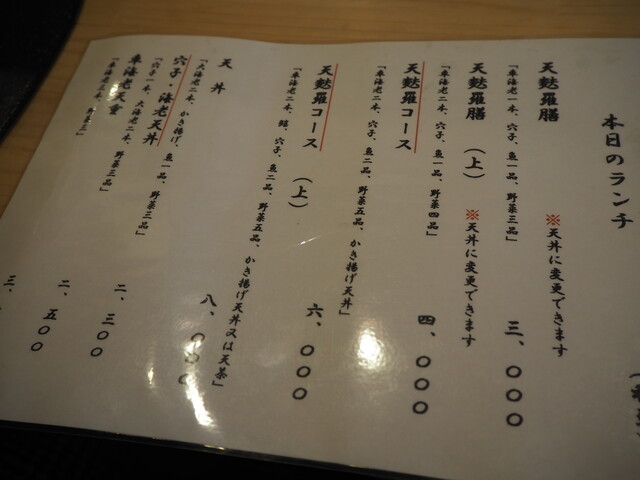 本日のランチ
天麩羅膳 ※天丼に変更できます
「車海老一本、穴子、魚一品、野菜三品」 三、〇〇〇
天麩羅膳（上） ※天丼に変更できます
「車海老二本、穴子、魚一品、野菜四品」 四、〇〇〇
天麩羅コース
「車海老二本、穴子、魚二品、野菜五品、かき揚げ天丼」 六、〇〇〇
天麩羅コース（上）
「車海老二本、鮑、穴子、魚二品、野菜五品、かき揚げ天丼又は天茶」 八、〇〇〇
天丼
「大海老二本、かき揚げ、魚一品、野菜三品」 二、三〇〇
穴子・海老天丼
「穴子一本、大海老二本、野菜三品」 二、五〇〇
車海老天重
三、